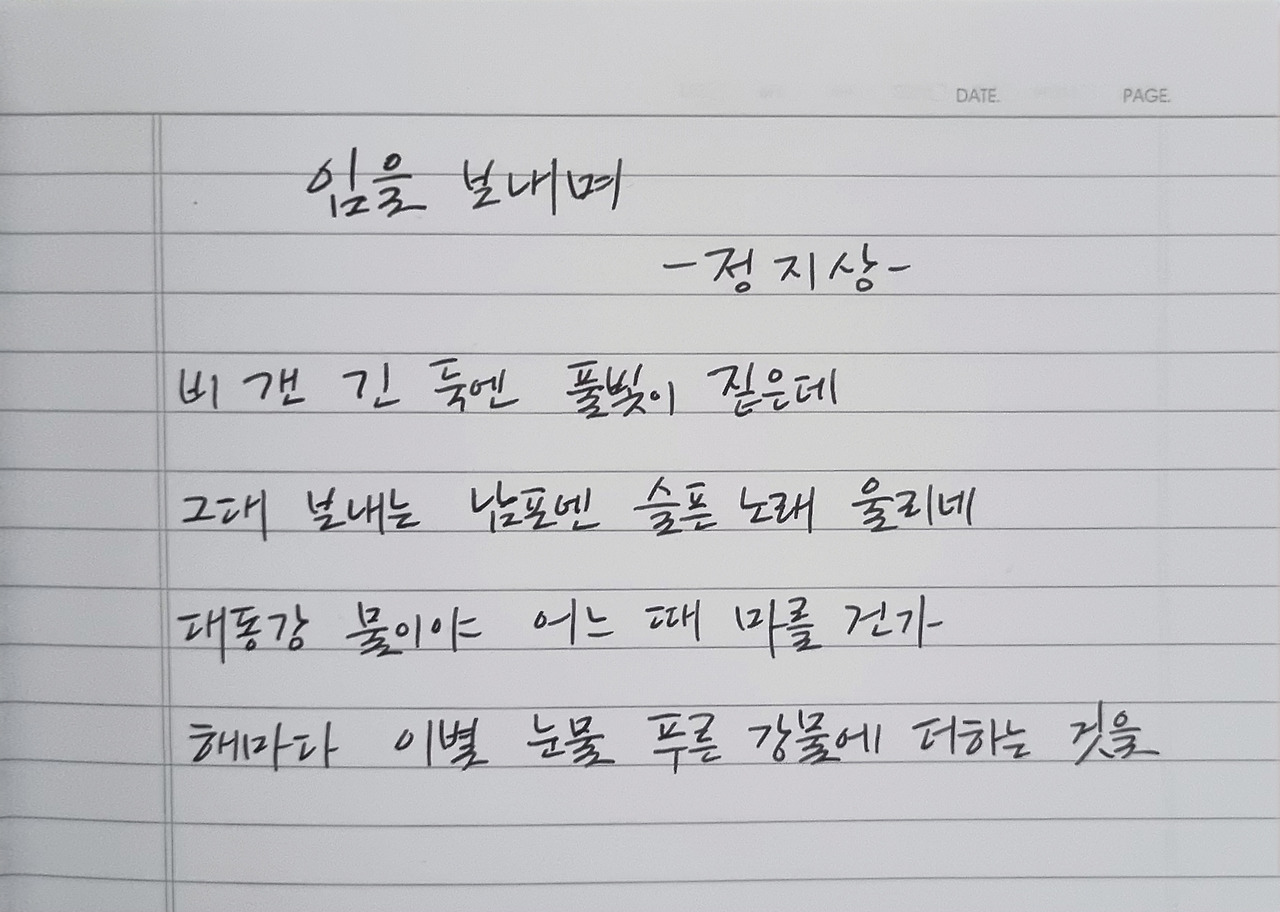 DATE. PAGE.
임을 보내며
-정지상-
비 갠 긴 둑엔 풀빛이 짙은데
그대 보내는 남포엔 슬픈 노래 울리네
대동강 물이야 어느 때 마를 건가
해마다 이별 눈물 푸른 강물에 더하는 것을